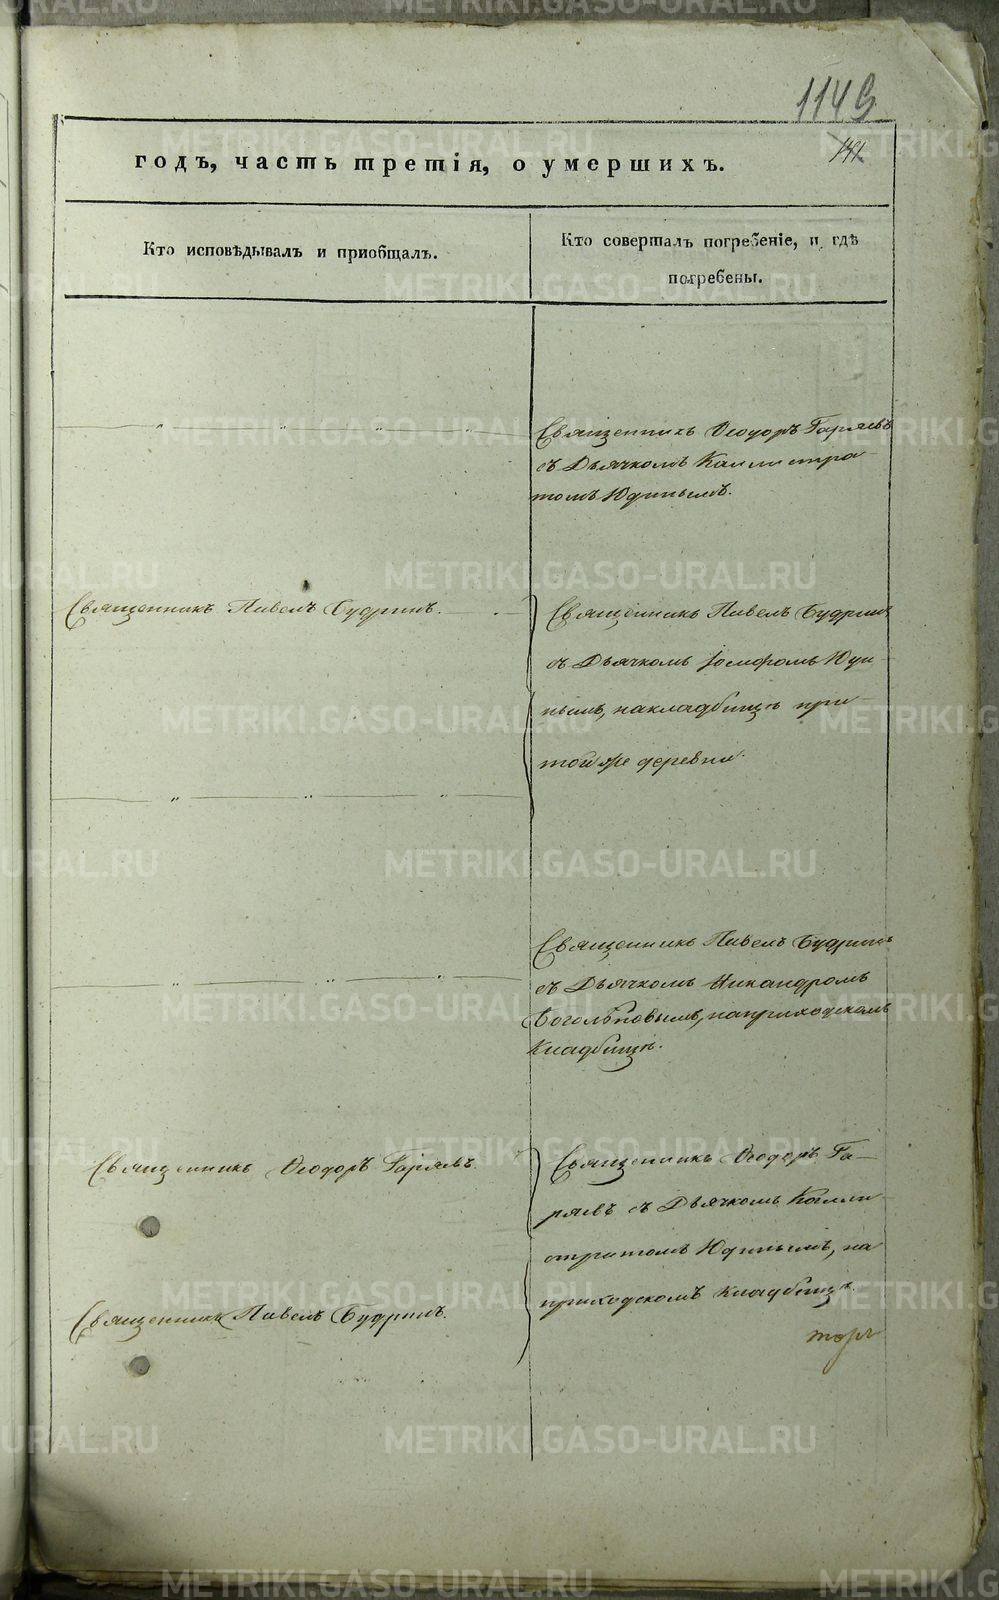 1149
141
годъ, часть третія, о умершихъ.
Кто исповѣдывалъ и приобщалъ.
Кто совершалъ погребеніе, и гдѣ
погребены.
Священникъ Ѳеодоръ Гаряевъ
съ Дьячкомъ Каллистра-
томъ Юдинымъ.
Священникъ Павелъ Будринъ.
Священникъ Павелъ Будринъ
съ Дьячкомъ Іосифомъ Юди-
нымъ, на кладбищѣ при
той же деревни.
Священникъ Павелъ Будринъ
съ Дьячкомъ Никандромъ
Боголѣповымъ, на приходскомъ
Кладбищѣ.
Священникъ Ѳеодоръ Гаряевъ.
Священникъ Ѳеодоръ Га-
ряевъ съ Дьячкомъ Калли-
стратомъ Юдинымъ, на
приходскомъ Кладбищѣ.
Священникъ Павелъ Будринъ.
METRIKI.GASO-URAL.RU